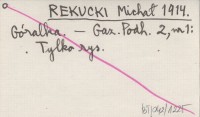 a
REKUCKI Michał 1914.
Góralka. — Gaz. Podh. 2, nr 1:
Tylko rys.